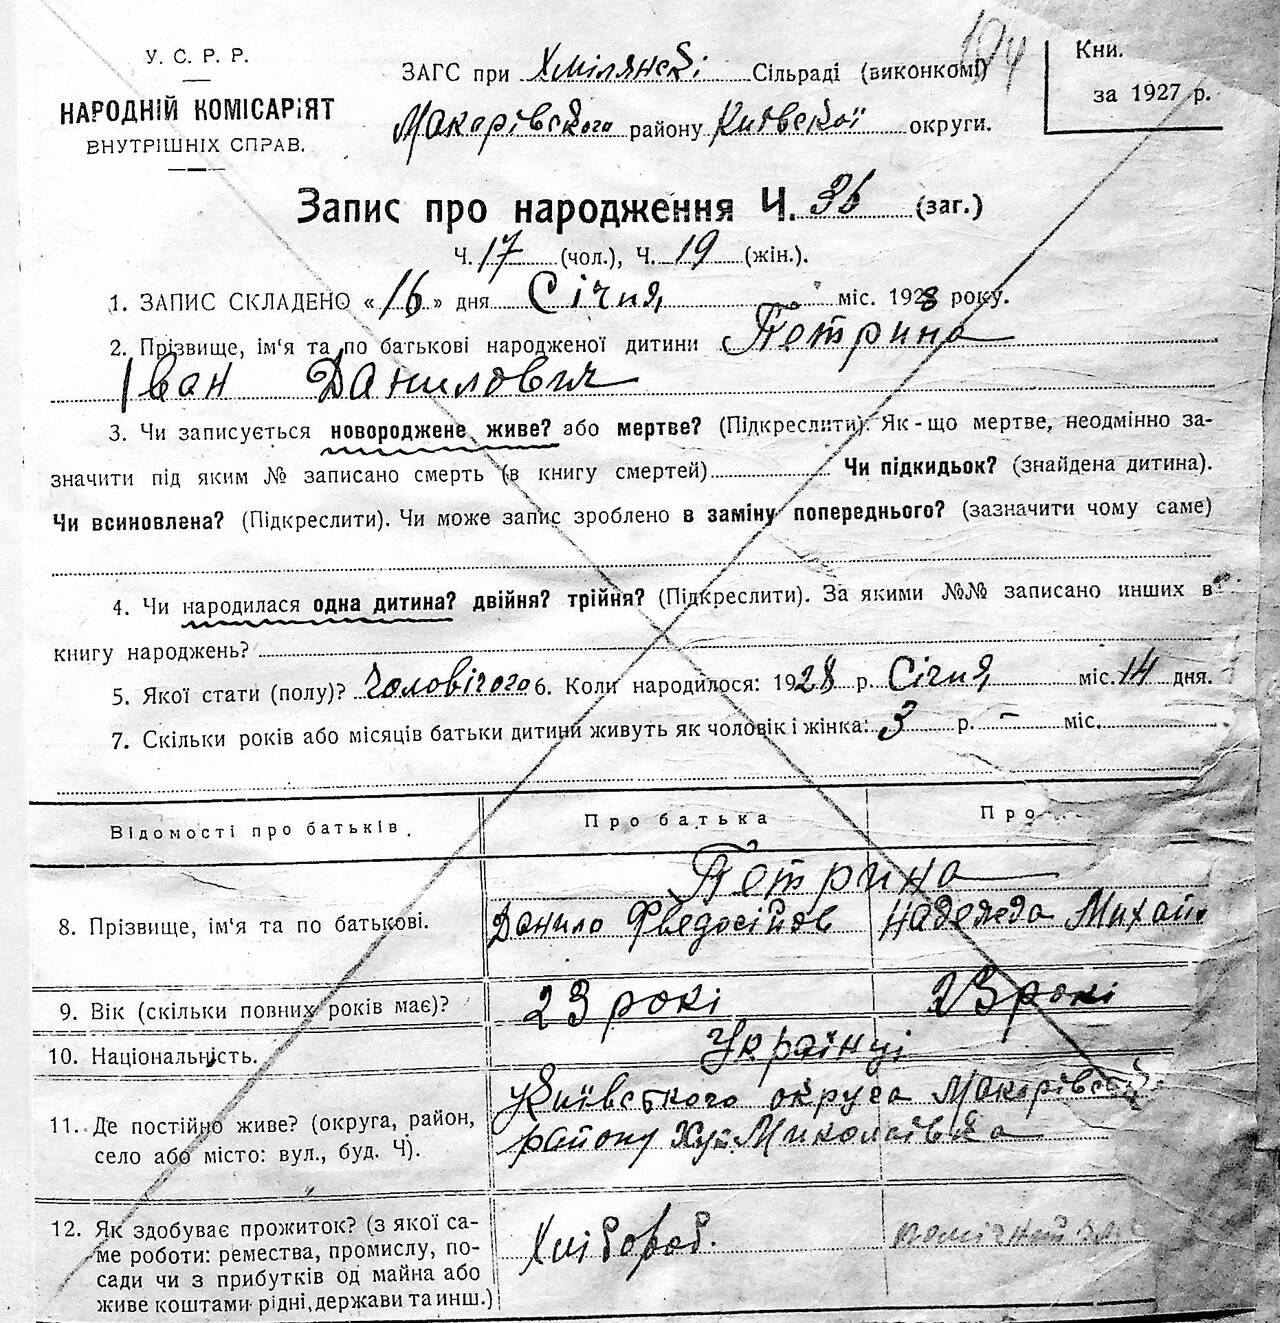 194
У. С. Р. Р.
НАРОДНІЙ КОМІСАРІЯТ
ВНУТРІШНІХ СПРАВ.
ЗАГС при Хмілянскі Сільраді (виконкомі)
Макарівского району Київскої округи.
Кни.
за 1927 р.
Запис про народження Ч. 36 (заг.)
Ч. 17 (чол.), Ч. 19 (жін.).
1. ЗАПИС СКЛАДЕНО « 16 » дня Січня міс. 1928 року.
2. Прізвище, ім'я та по батькові народженої дитини Петрина
Іван Данилович
3. Чи записується новороджене живе? або мертве? (Підкреслити). Як-що мертве, неодмінно за-
значити під яким № записано смерть (в книгу смертей) Чи підкидьок? (знайдена дитина).
Чи всиновлена? (Підкреслити). Чи може запис зроблено в заміну попереднього? (зазначити чому саме)
4. Чи народилася одна дитина? двійня? трійня? (Підкреслити). За якими №№ записано инших в
книгу народжень?
5. Якої стати (полу)? Чоловічого 6. Коли народилося: 1928 р. Січня міс. 14 дня.
7. Скільки років або місяців батьки дитини живуть як чоловік і жінка: 3 р. – міс.
Відомості про батьків.
Про батька
Про
8. Прізвище, ім'я та по батькові.
Петрина
Данило Фведосійов
Надежда Михай
9. Вік (скільки повних років має)?
23 рокі
23 рокі
10. Національність.
Українці
11. Де постійно живе? (округа, район,
село або місто: вул., буд. Ч).
Київсткого округа Макарівской
району Хут. Миколаївка
12. Як здобуває прожиток? (з якої са-
ме роботи: ремества, промислу, по-
сади чи з прибутків од майна або
живе коштами рідні, держави та инш.)
Хлібороб.